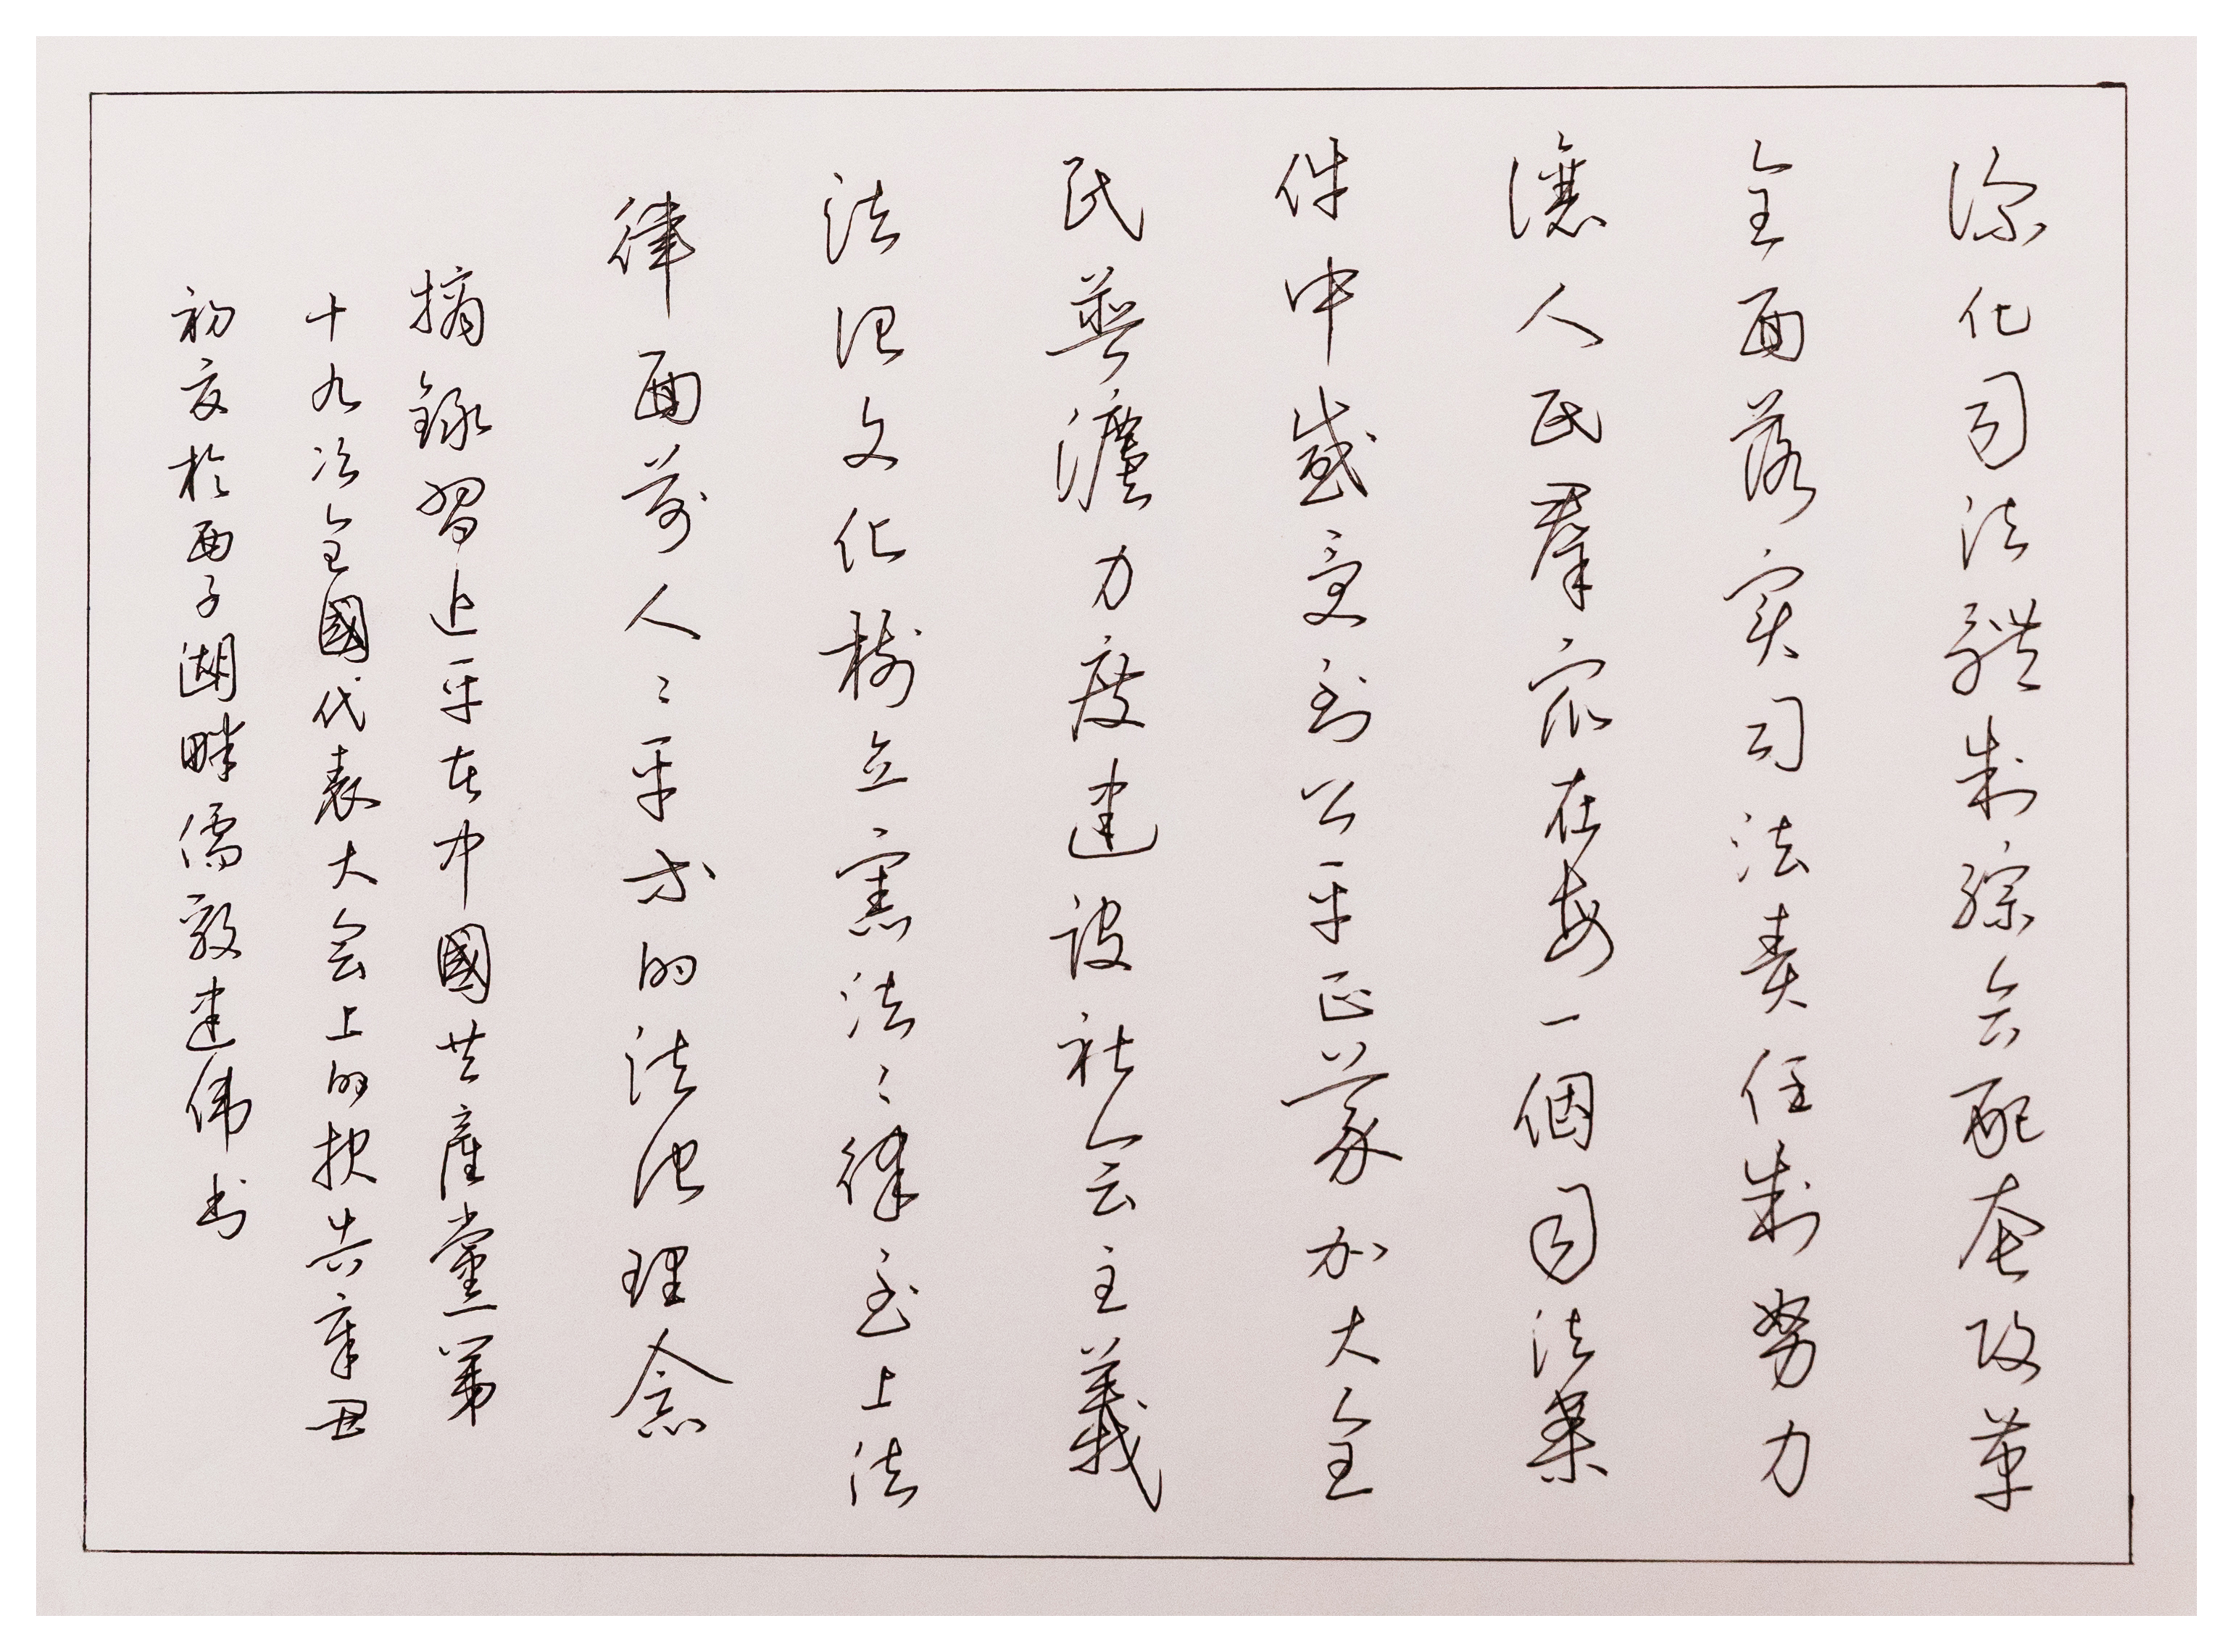 深化司法體制綜合配套改革
全面落实司法责任制努力
讓人民羣眾在每一個司法案
件中感受到公平正義加大全
民普灋力度建设社会主義
法治文化樹立憲法〻律至上法
律面前人〻平等的法治理念
摘錄習近平在中國共產黨第
十九次全國代表大会上的报告辛丑
初夏於西子湖畔儒建伟书